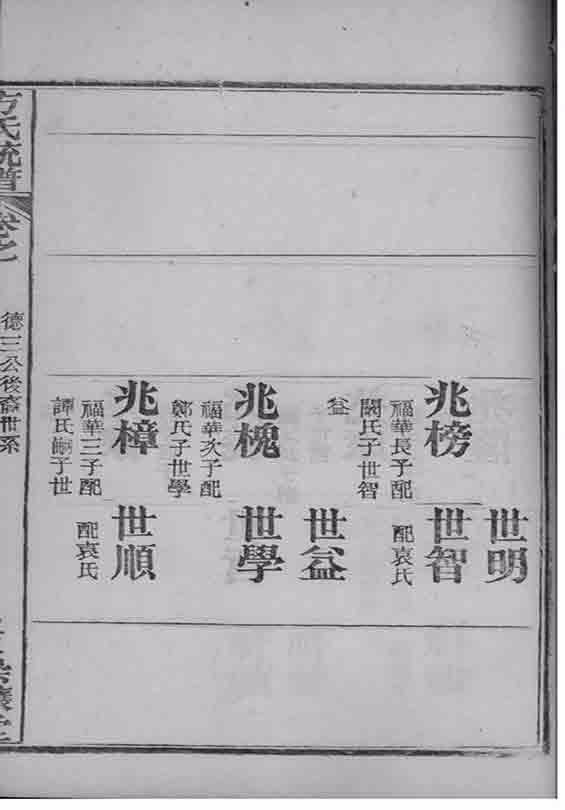 世明
兆榜
福華長子配
闕氏子世智
益
世智
配袁氏
世益
兆槐
福華次子配
鄭氏子世學
世學
兆樟
福華三子配
譚氏嗣子世
世順
配袁氏
方氏統譜
卷之
德三公後裔世系